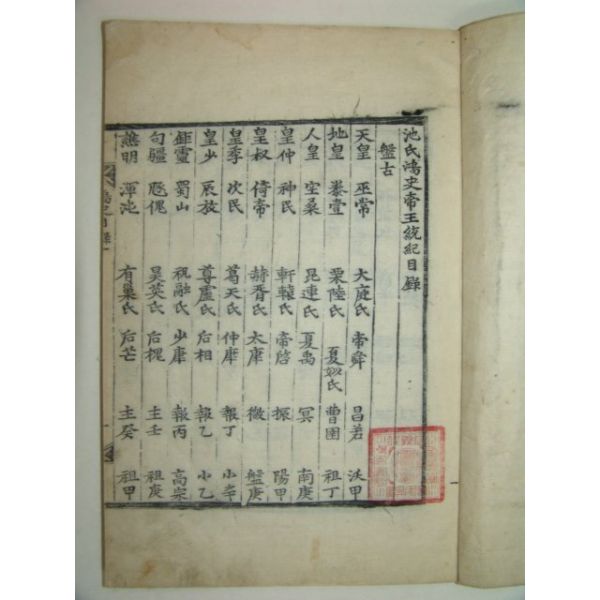 池氏鴻史帝王統紀目錄
盤古
天皇 巫常 大庭氏 帝舜 昌若 沃甲
地皇 泰壹 栗陸氏 夏姒氏 曹圉 祖丁
人皇 空桑 昆連氏 夏禹 冥 南庚
皇仲 神民 軒轅氏 帝啓 振 陽甲
皇叔 倚帝 赫胥氏 太康 微 盤庚
皇季 次民 葛天氏 仲康 報丁 小辛
皇少 辰放 尊盧氏 后相 報乙 小乙
鉅靈 蜀山 祝融氏 少康 報丙 高宗
句疆 豗傀 昊英氏 后槐 主壬 祖庚
譙明 渾沌 有巢氏 后芒 主癸 祖甲
鴻史目錄 一